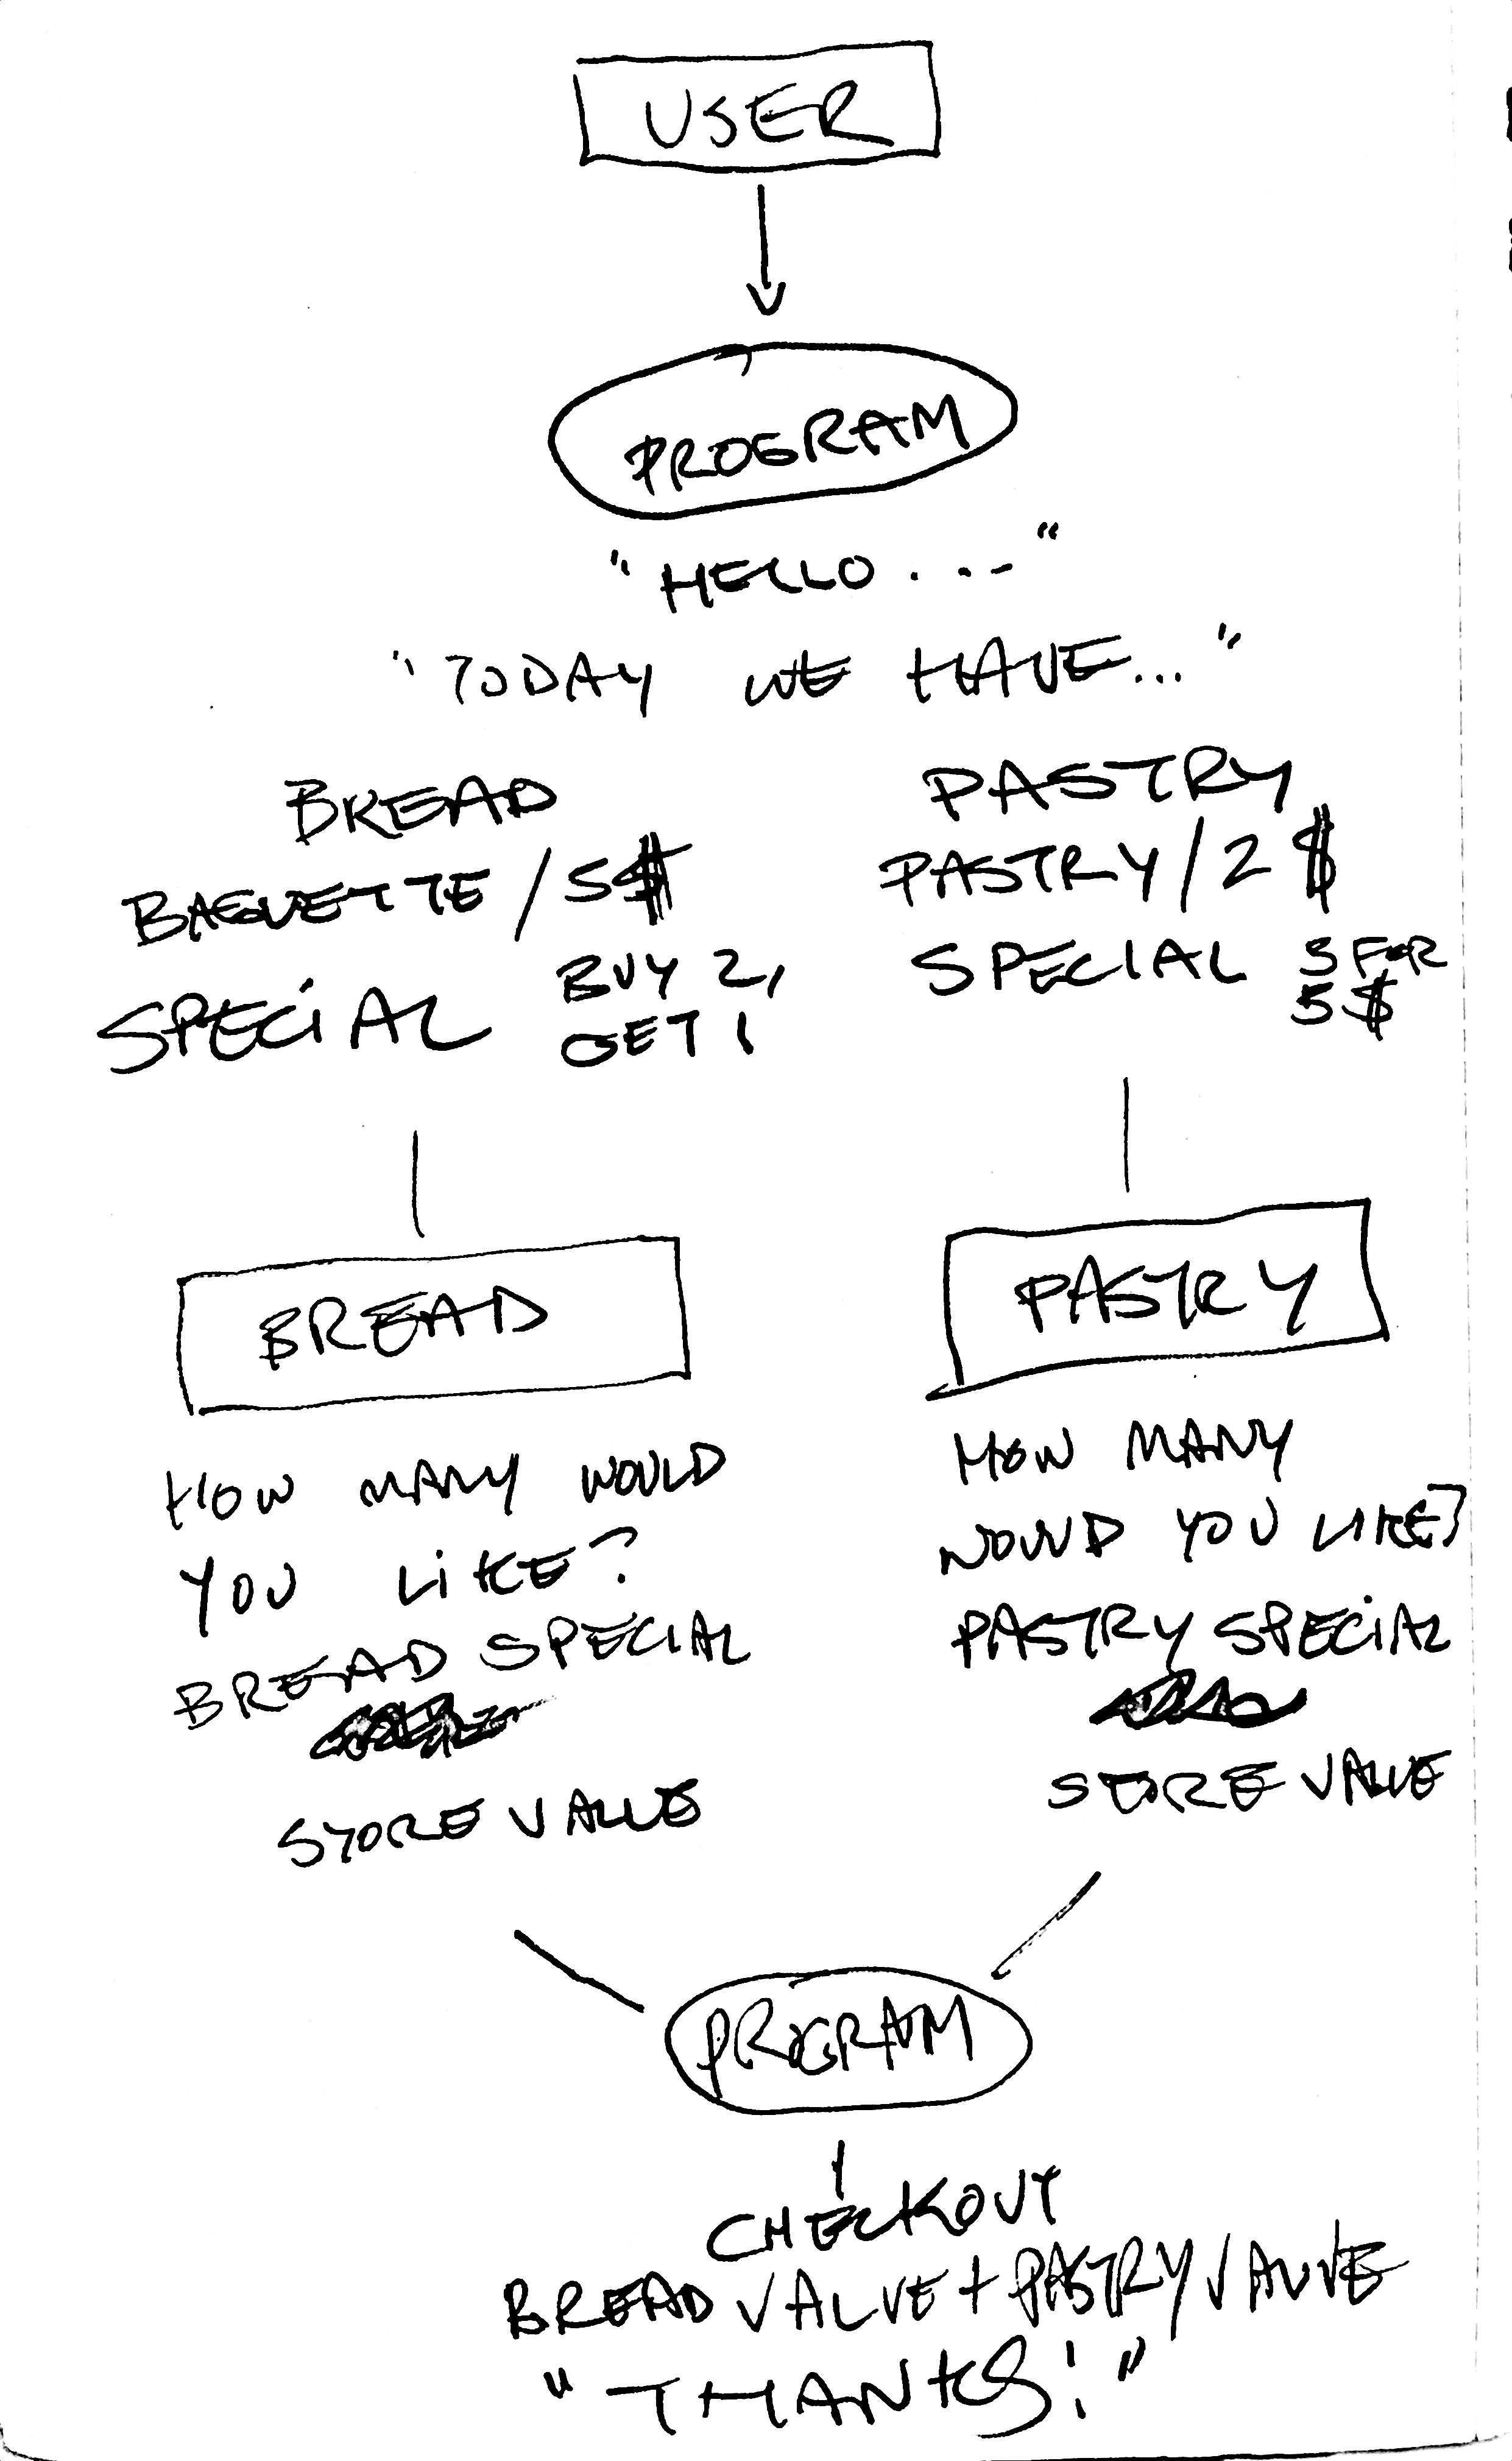 USER
PROGRAM
"HELLO...."
"TODAY WE HAVE..."
BREAD
BAGUETTE/5$
SPECIAL BUY 2,
GET 1
PASTRY
PASTRY/2$
SPECIAL 3 FOR
5$
BREAD
HOW MANY WOULD
YOU LIKE?
BREAD SPECIAL
STORE VALUE
PASTRY
HOW MANY
WOULD YOU LIKE?
PASTRY SPECIAL
STORE VALUE
PROGRAM
CHECKOUT
BREAD VALUE + PASTRY VALUE
"THANKS!"